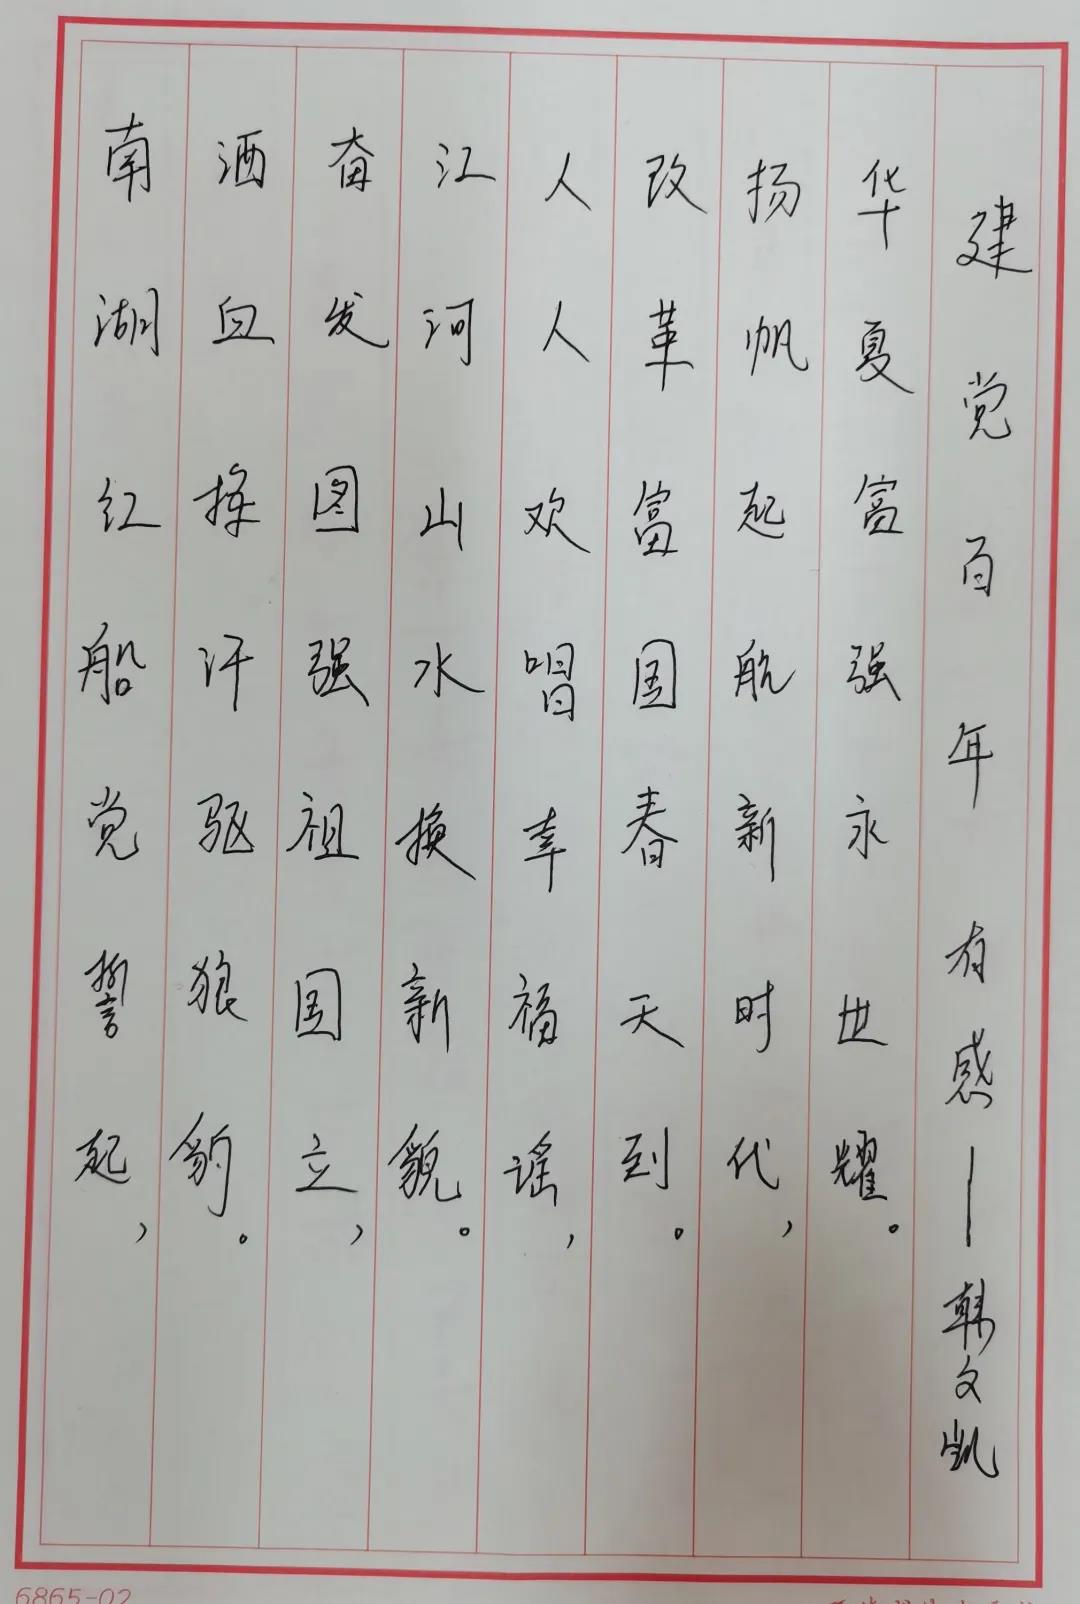 建党百年有感—韩文凯
南湖红船党誓起，
洒血挥汗驱狼豹。
奋发图强祖国立，
江河山水换新貌。
人人欢唱幸福谣，
改革富国春天到。
扬帆起航新时代，
华夏富强永世耀。
6865-02